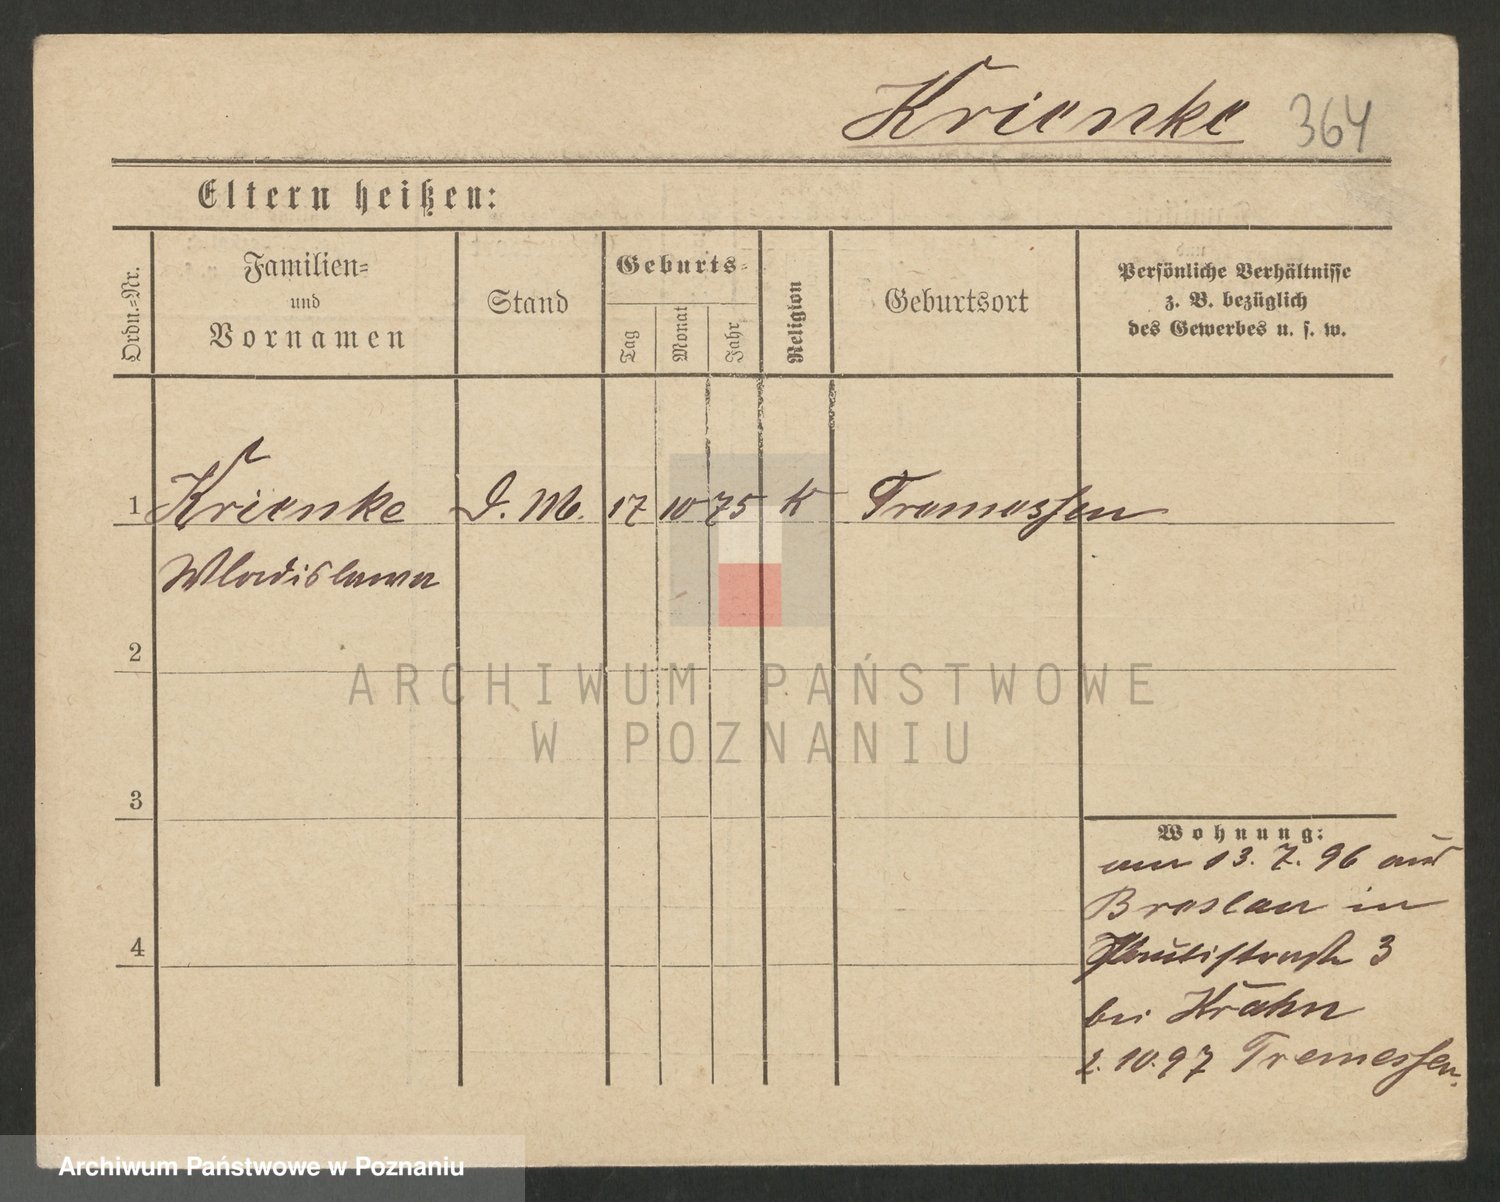 Krienke 364
Eltern heißen:
Ordn.=Nr.
Familien=
und
Vornamen
Stand
Geburts=
Tag
Monat
Jahr
Religion
Geburtsort
Persönliche Verhältnisse
z. B. bezüglich
des Gewerbes u. s. w.
1 Krienke D. M. 17 10 75 K Tremessen
Wladislawa
2
3
4
Wohnung:
am 13. 7. 96 aus
Breslau in
Paulistraße 3
bei Krahn
2. 10. 97 Tremessen.
ARCHIWUM PAŃSTWOWE
W POZNANIU
Archiwum Państwowe w Poznaniu